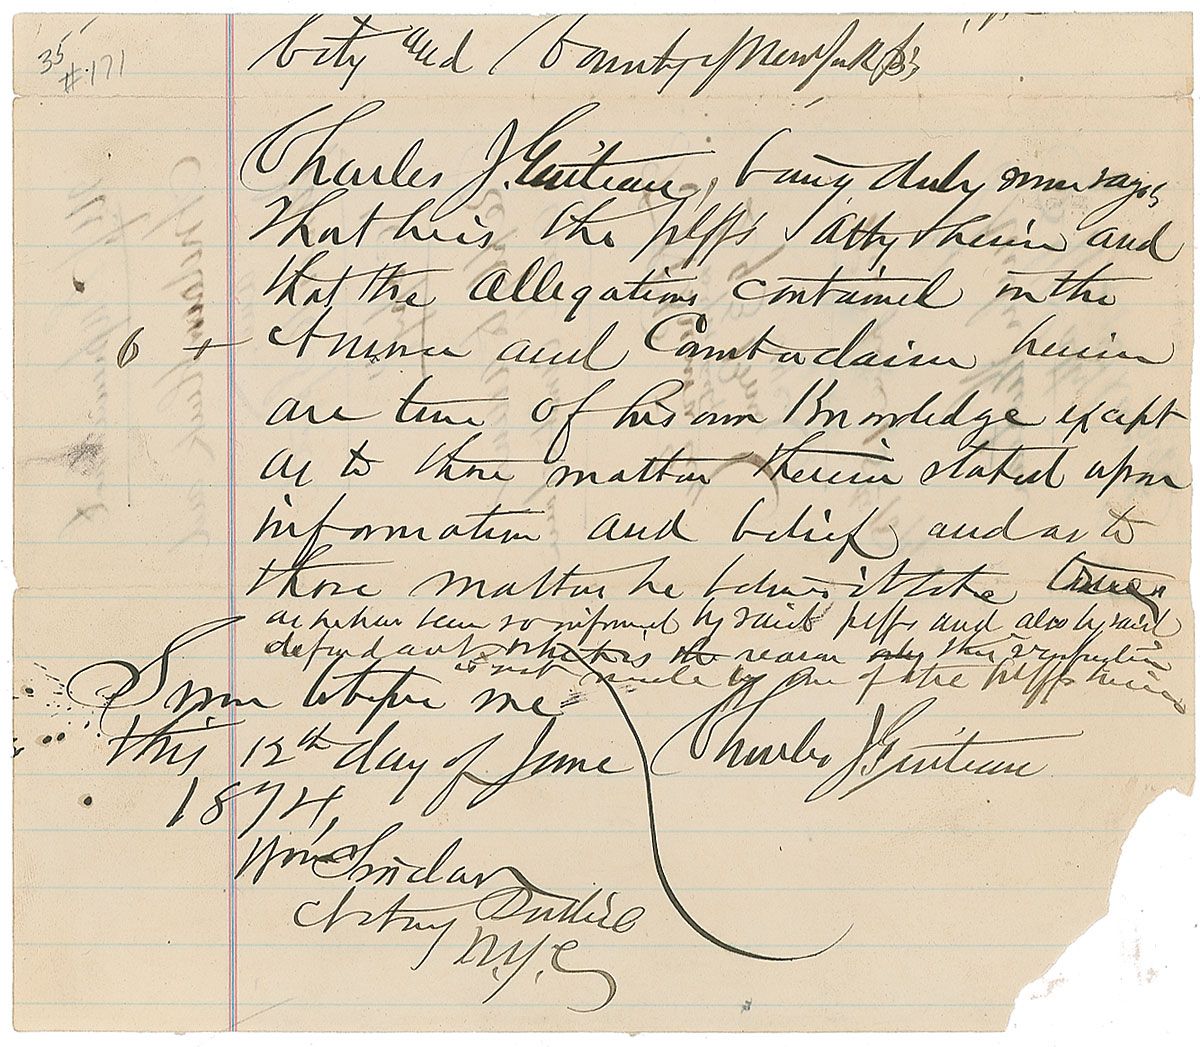 35
#171
City and County of New York ss;
Charles J. Guiteau, being duly sworn says
that he is the plffs Atty herein and
that the allegations contained in the
Answer and Counterclaim herein
6 +
are true of his own Knowledge except
as to those matters therein stated upon
information and belief and as to
those matters he believes it to be true
as he has been so informed by said plffs and also by said
defendant which is the reason why this verification
is not made by one of the plffs herein
Sworn to before me
this 12th day of June
1874,
Charles J. Guiteau
Wm Sinclair
Notary Public
N.Y.C